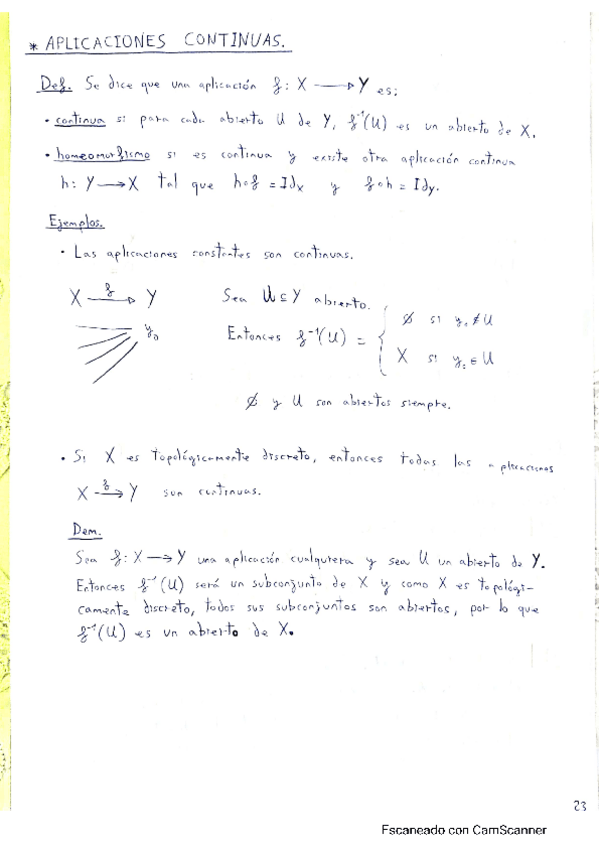 * APLICACIONES CONTINUAS.
Def. Se dice que una aplicación f: X → Y es:
• continua si para cada abierto U de Y, f⁻¹(U) es un abierto de X.
• homeomorfismo si es continua y existe otra aplicación continua
h: Y → X tal que h∘f = Idx y f∘h = Idy.
Ejemplos.
• Las aplicaciones constantes son continuas.
X —f→ Y
y₀
Sea U ⊆ Y abierto.
Entonces f⁻¹(U) = { ∅ si y₀ ∉ U
X si y₀ ∈ U
∅ y U son abiertos siempre.
• Si X es topológicamente discreto, entonces todas las aplicaciones
X —f→ Y son continuas.
Dem.
Sea f: X → Y una aplicación cualquiera y sea U un abierto de Y.
Entonces f⁻¹(U) será un subconjunto de X y como X es topológi-
camente discreto, todos sus subconjuntos son abiertos, por lo que
f⁻¹(U) es un abierto de X.
23
Escaneado con CamScanner